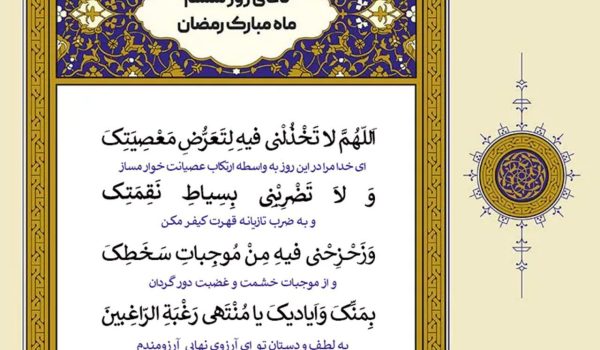 دعای روز ششم
ماه مبارک رمضان
اَللّهُمَّ لا تَخْذُلْنی فیهِ لِتَعَرُّضِ مَعْصِیَتِکَ
ای خدا مرا در این روز به واسطه ارتکاب عصیانت خوار مساز
وَ لاَ تَضْرِبْنِی بِسِیاطِ نَقِمَتِک
و به ضرب تازیانه قهرت کیفر مکن
وَزَحْزِحْنی فیهِ مِنْ مُوجِباتِ سَخَطِکَ
و از موجبات خشمت و غضبت دور گردان
بِمَنِّکَ وَاَیادیکَ یا مُنْتَهی رَغْبَةِ الرّاغِبینَ
به لطف و دستان تو ای آرزوی نهایی آرزومندم